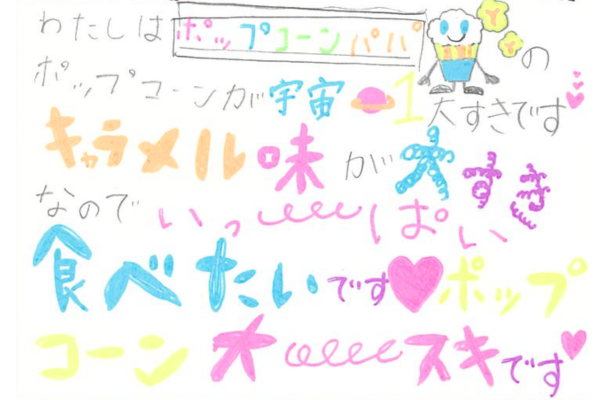 わたしはポップコーンパパの
ポップコーンが宇宙1大すきです
キャラメル味が大すき
なのでいっぱい
食べたいですポップ
コーン大スキです